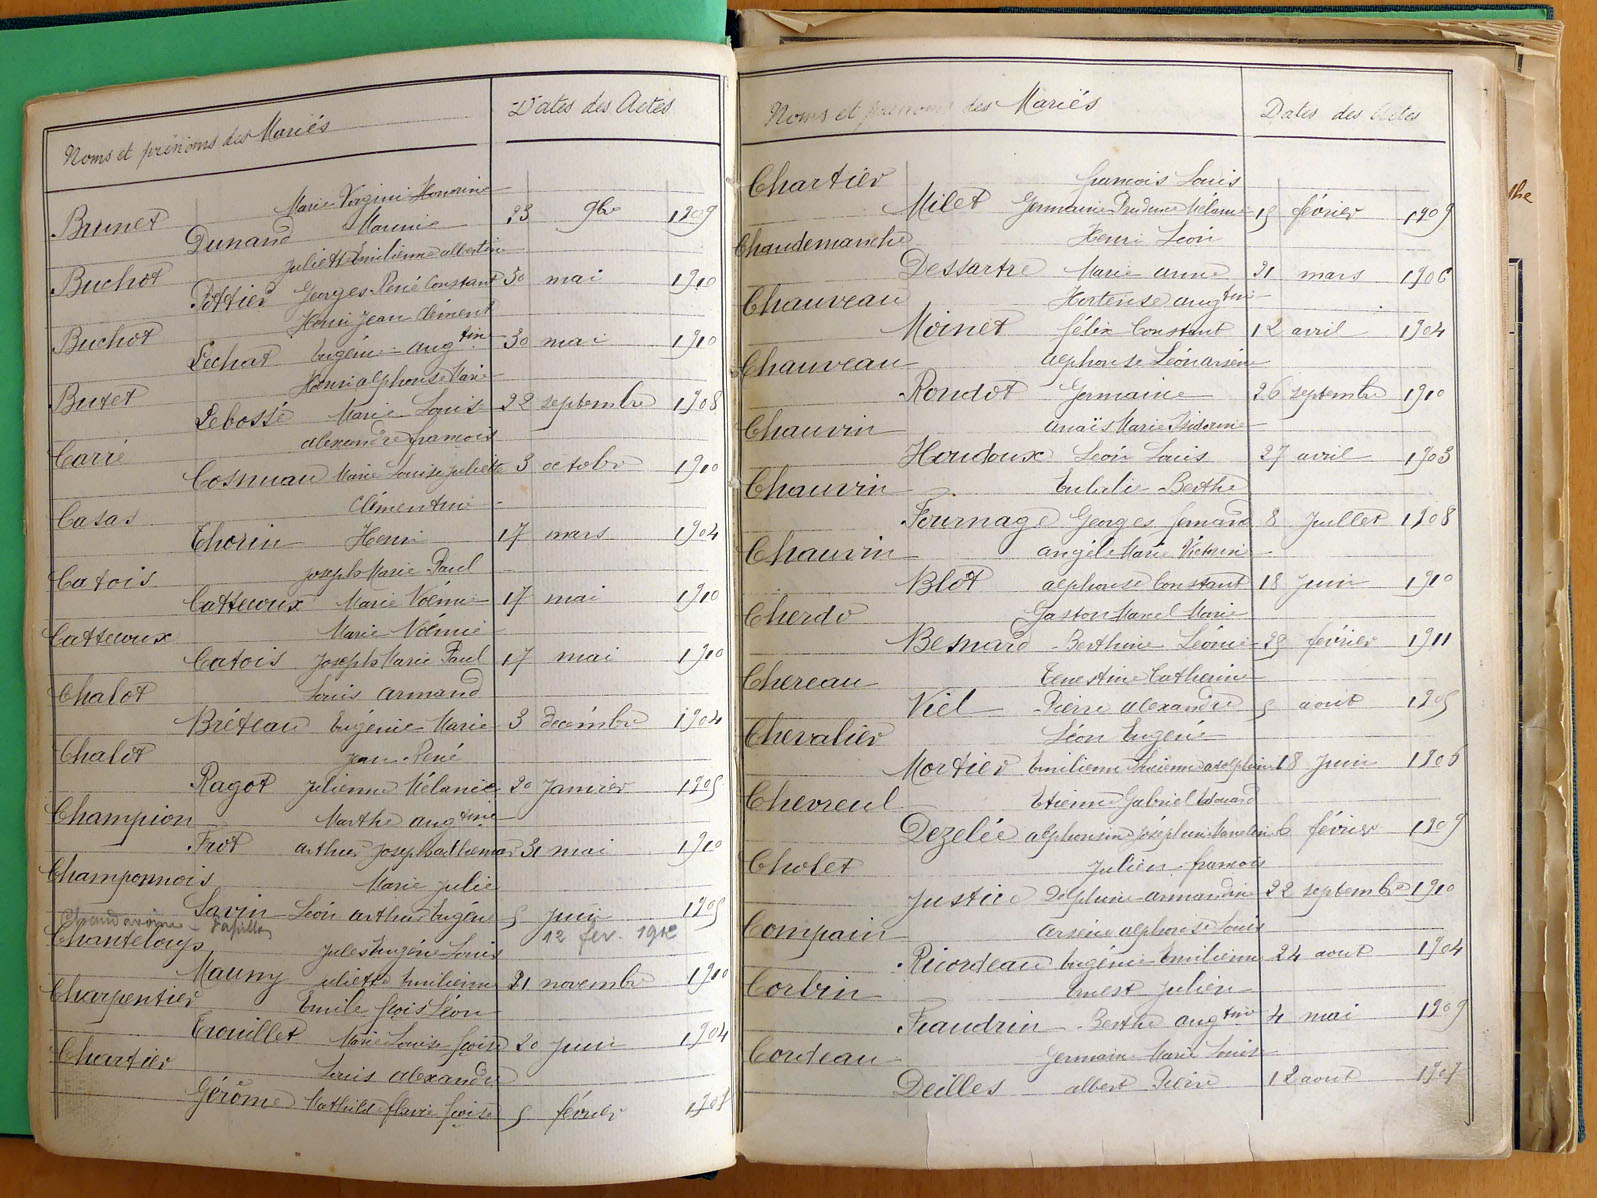 Noms et prénoms des Mariés Dates des Actes
Brunet Marie Virginie Honorine
Dunand Maurice 23 9bre 1909
Buchot Juliette Emilienne albertine
Pottier Georges René Constant 30 mai 1910
Buchot Henri Jean Clément
Lechat Eugénie augtine 30 mai 1910
Buret Henri alphonse Marie
Lebossé Marie Louise 22 septembre 1908
Carré alexandre francois
Cosnuau Marie Louise Juliette 3 octobre 1910
Casas Clémentine
Thorin Henri 17 mars 1904
Catois Joseph Marie Paul
Cattecoux Marie Noémie 17 mai 1910
Cattecoux Marie Noémie
Catois Joseph Marie Paul 17 mai 1910
Chalot Louis armand
Bréteau Eugénie Marie 3 décembre 1904
Chalot Jean René
Ragot Julienne Mélanie 20 Janvier 1905
Champion Marthe augtine
Frot arthur Joseph 31 mai 1910
Champonnois Marie Julie
Savin Léon arthur Eugène 5 Juin 1905
12 fev. 1912
Chanteloup Jules Eugène Louis
Mauny Juliette Emilienne 21 novembre 1910
Charpentier Emile fcois Léon
Trouillet Marie Louise fcoise 20 Juin 1904
Chartier Louis alexandre
Gérôme Mathilde flavie fcoise 5 février
Noms et prénoms des Mariés Dates des Actes
Chartier francois Louis
Milet Germaine Prudence Mélanie 15 février 1909
Chaudemanche Henri Léon
Dessartre Marie anne 21 mars 1906
Chauveau Hortense augtine
Moinet félix Constant 12 avril 1904
Chauveau alphonse Léon arsène
Rondot Germaine 26 septembre 1910
Chauvin anaïs Marie Isidorine
Houdoux Léon Louis 27 avril 1903
Chauvin Eulalie Berthe
Fournage Georges fernand 8 Juillet 1908
Chauvin angèle Marie Victorine
Blot alphonse Constant 18 Juin 1910
Cherdo Gaston Marcel Marie
Besnard Berthine Léonie février 1911
Chereau Ernestine Catherine
Viel Pierre alexandre 5 aout 1905
Chevalier Léon Eugène
Mortier Emilienne Lucienne 18 Juin 1906
Chevreul Etienne Gabriel Edouard
Dezelée alphonsine Joséphine 6 février 1909
Cholet Julien francois
Justice Delphine armandine 22 septembre 1910
Compain arsène alphonse Louis
Ricordeau Eugénie Emilienne 24 aout 1904
Corbin Ernest Julien
Fraudrin Berthe augtine 4 mai 1909
Cordeau Germaine Marie Louise
Deilles albert Pierre 12 aout 1907